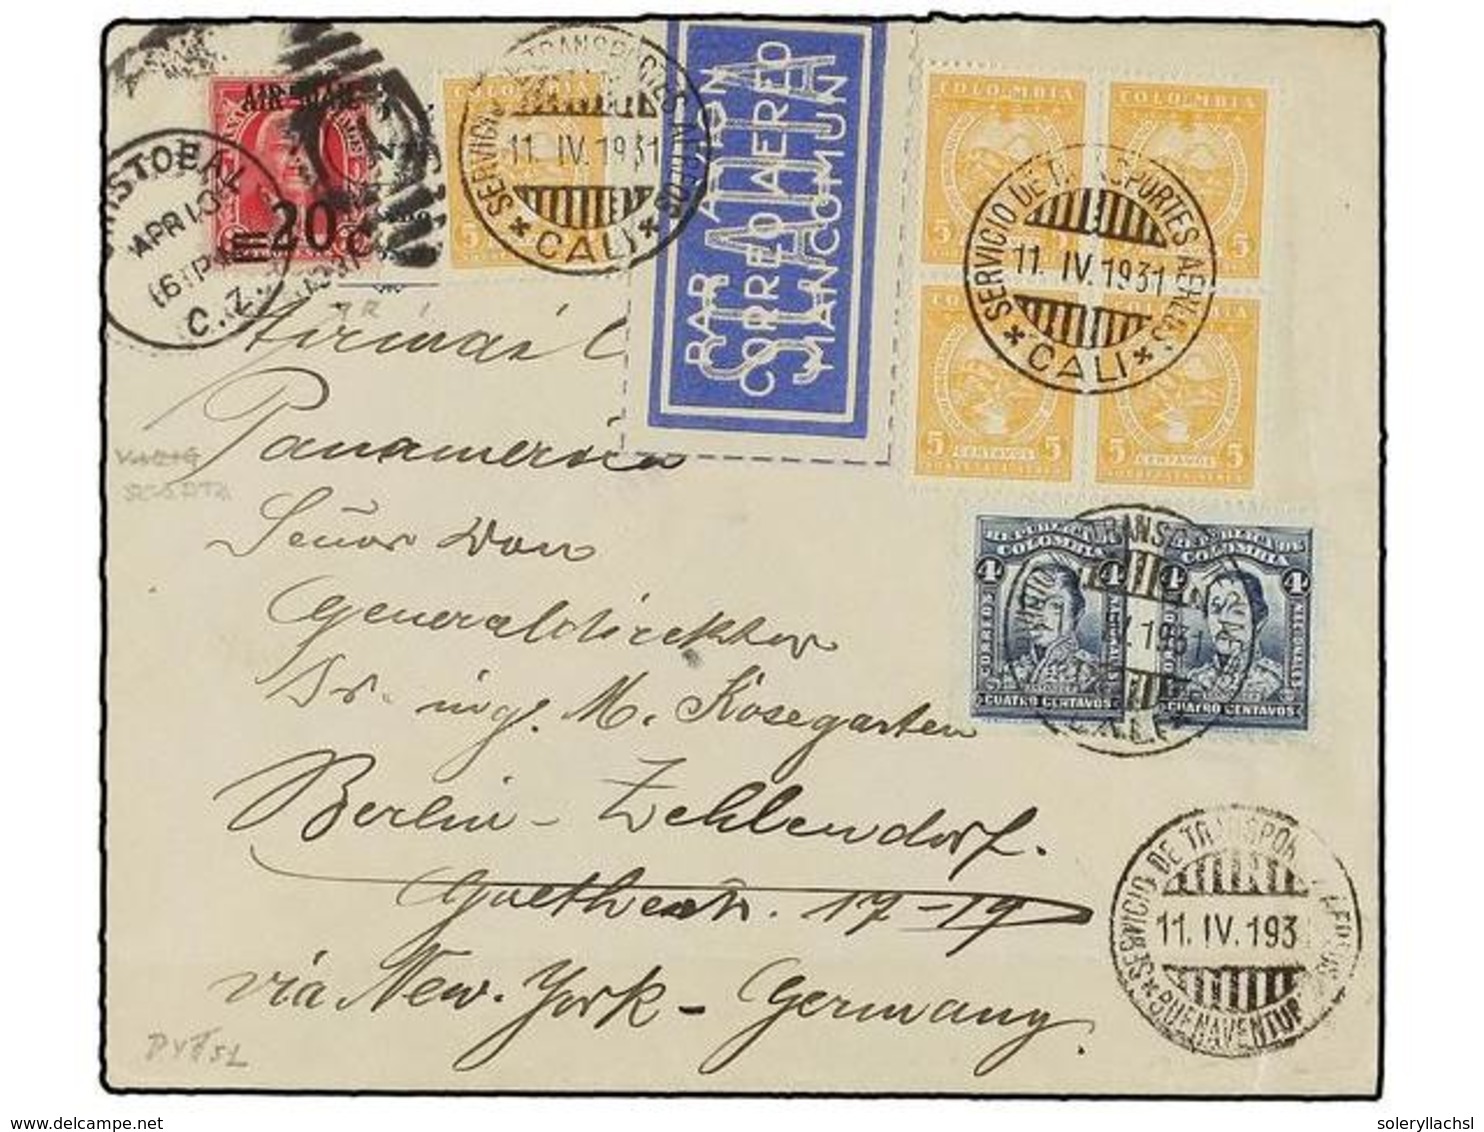 AIR MAIL
20
CRISTOBAL
APR 13
C. Z.
1931
COLOMBIA
5
SERVICIO DE TRANSPORTES AEREOS
11. IV. 1931
* CALI *
PAR AVION
CORREO AEREO
MANCOMUN
SCADTA
COLOMBIA
COLOMBIA
5
5
SERVICIO DE TRANSPORTES AEREOS
11. IV. 1931
* CALI *
5 CENTAVOS 5
5 CENTAVOS 5
Airmail
Panamerica
Señor Don
Generaldirektor
Dr. ing. M. Kosegarten
Berlin - Zehlendorf.
Goethestr. 17-19
via New-York - Germany.
COLOMBIA
COLOMBIA
4 4
4 4
CORREOS
IV. 1931
CUATRO CENTAVOS
CUATRO CENTAVOS
CALI
SERVICIO DE TRANSPOR AEREOS
11. IV. 193
* BUENAVENTUR
delcampe.net
soleryllachsl